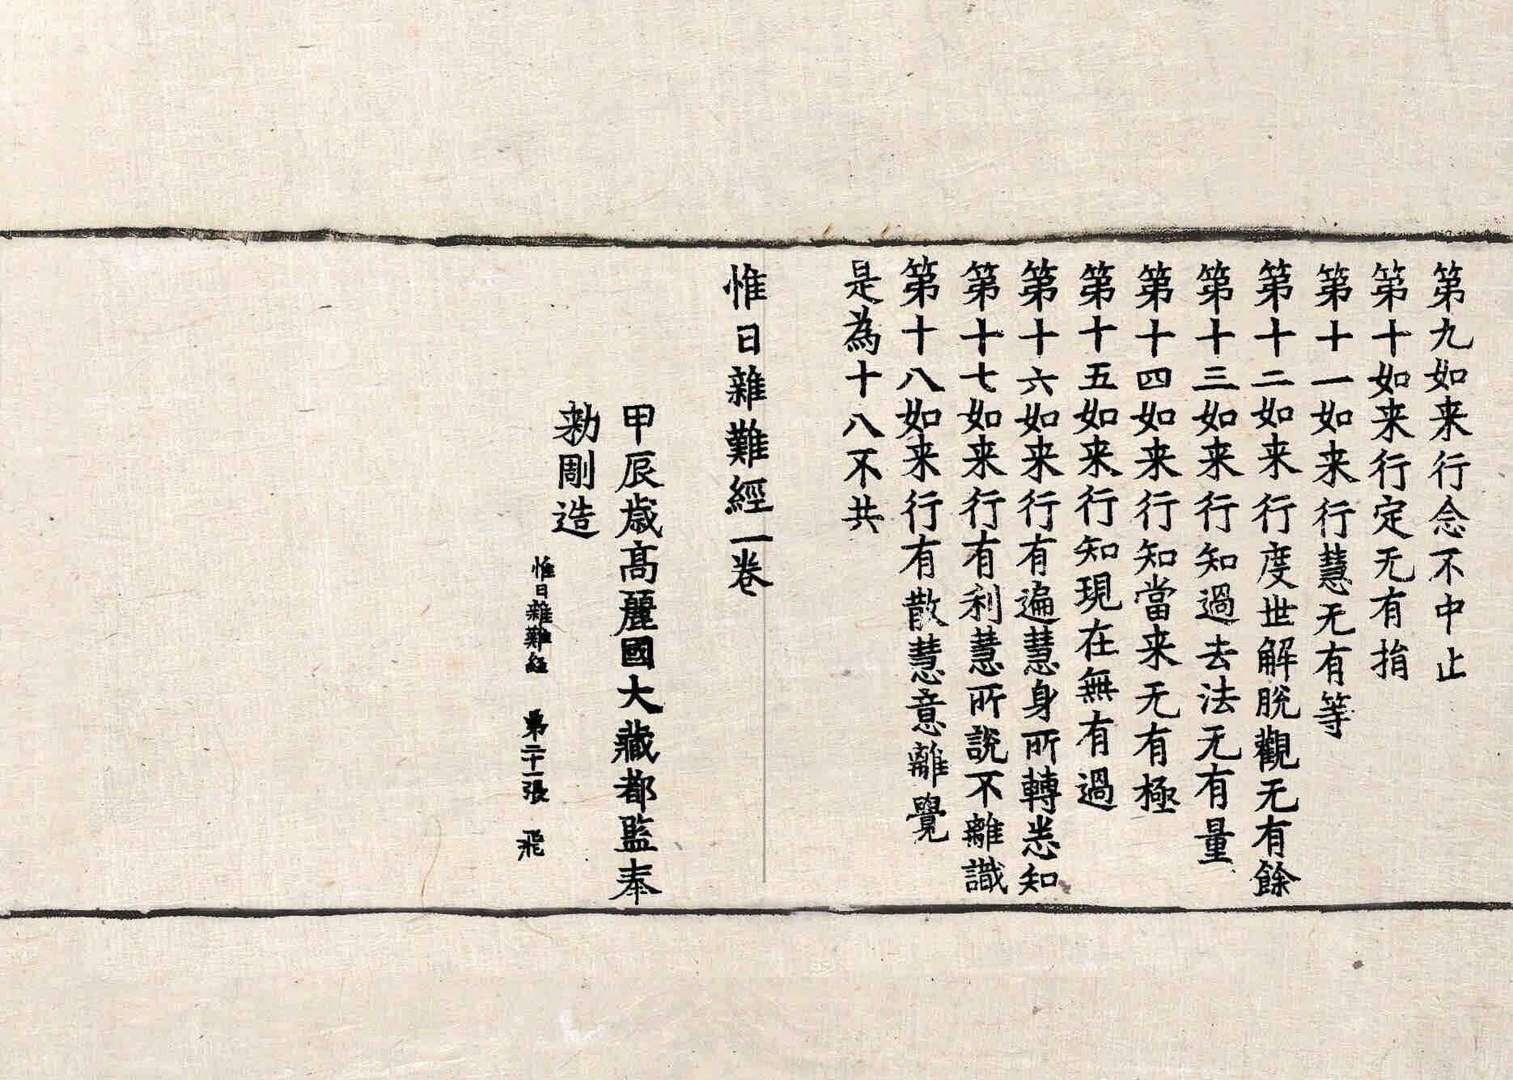 第九如来行念不中止
第十如来行定无有㨒
第十一如来行慧无有等
第十二如来行度世解脫觀无有餘
第十三如来行知過去法无有量
第十四如来行知當来无有極
第十五如来行知現在無有過
第十六如来行有遍慧身所轉悉知
第十七如来行有利慧所說不離識
第十八如来行有散慧意離覺
是為十八不共
惟日雜難經一卷
甲辰歲髙麗國大藏都監奉
勑剛造
惟日雜難經 第二十一張 飛